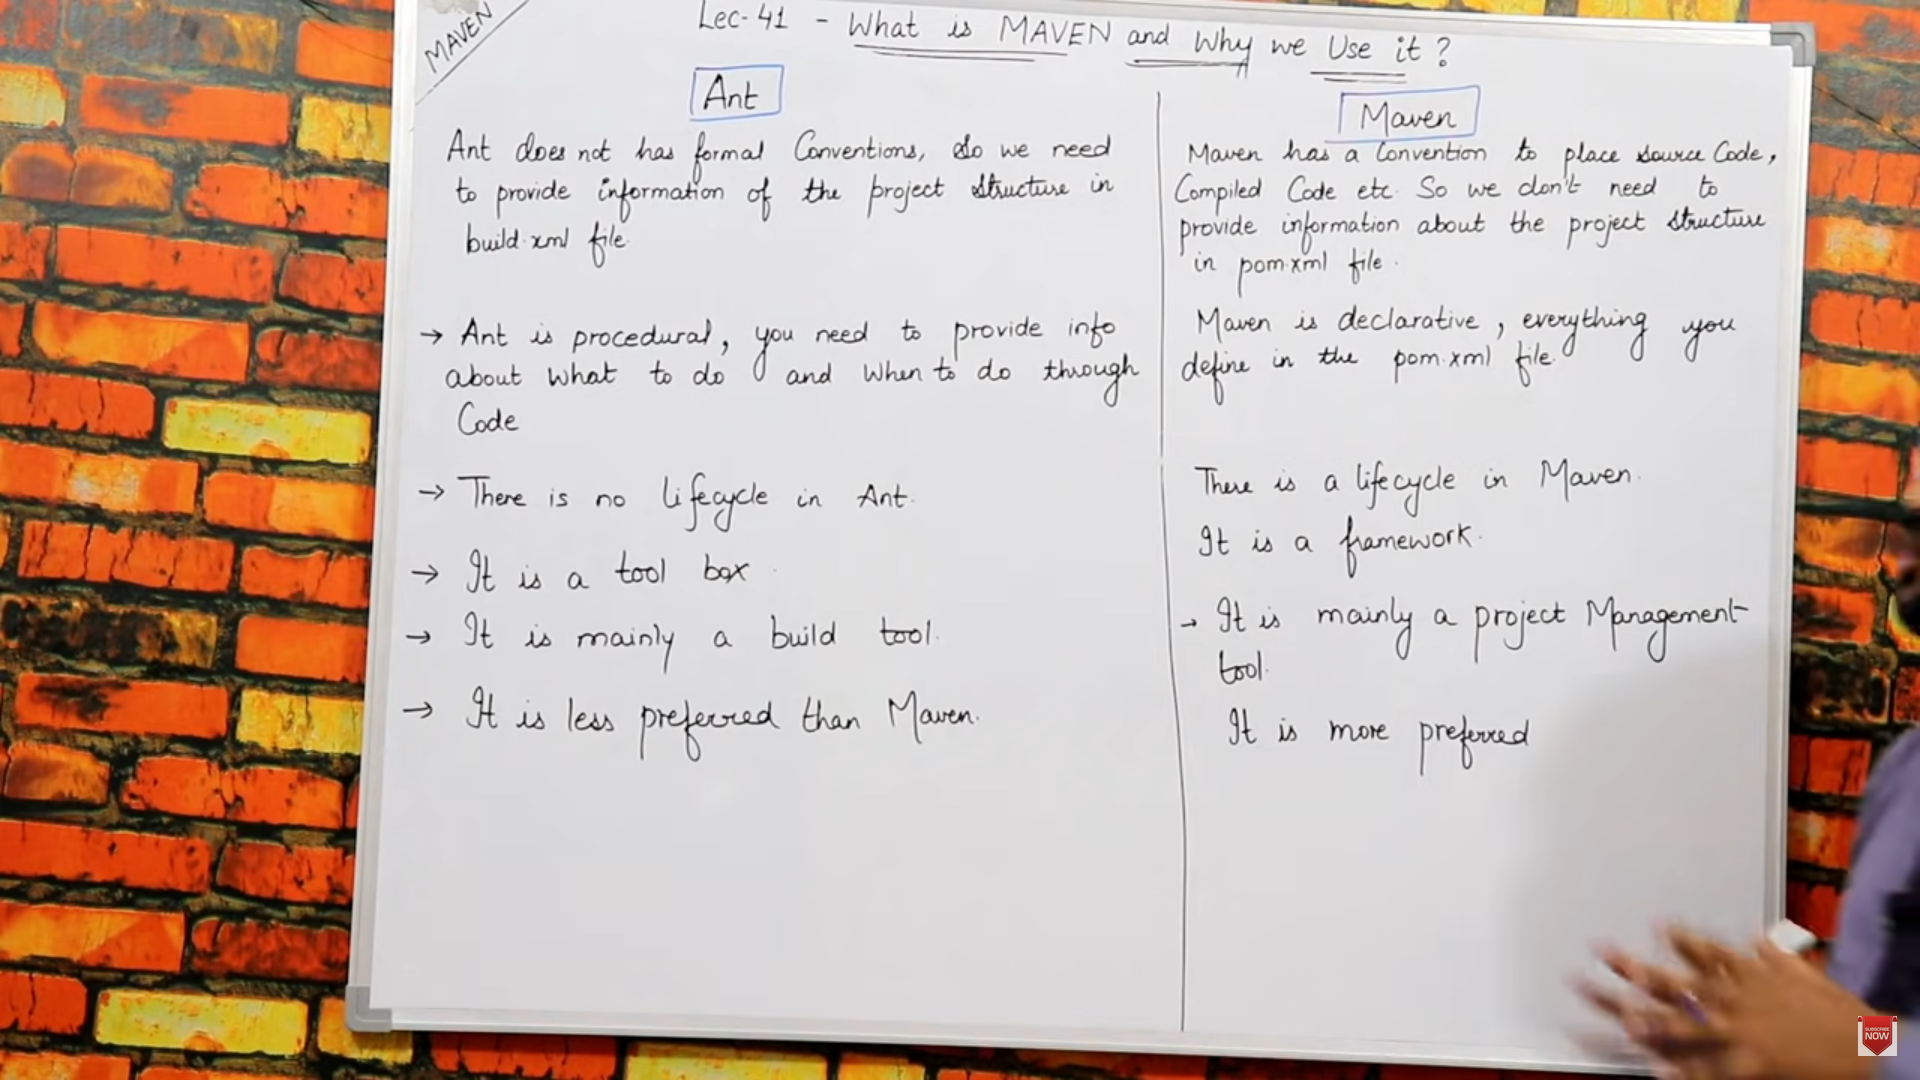 MAVEN
Lec-41 - What is MAVEN and Why we Use it?
Ant
Ant does not has formal Conventions, So we need
to provide information of the project Structure in
build.xml file.
→ Ant is procedural, you need to provide info
about what to do and when to do through
Code
→ There is no lifecycle in Ant.
→ It is a tool box
→ It is mainly a build tool.
→ It is less preferred than Maven.
Maven
Maven has a Convention to place source Code,
Compiled Code etc. So we don't need to
provide information about the project structure
in pom.xml file.
Maven is declarative, everything you
define in the pom.xml file.
There is a lifecycle in Maven.
It is a framework.
→ It is mainly a project Management
tool.
It is more preferred
SUBSCRIBE
NOW